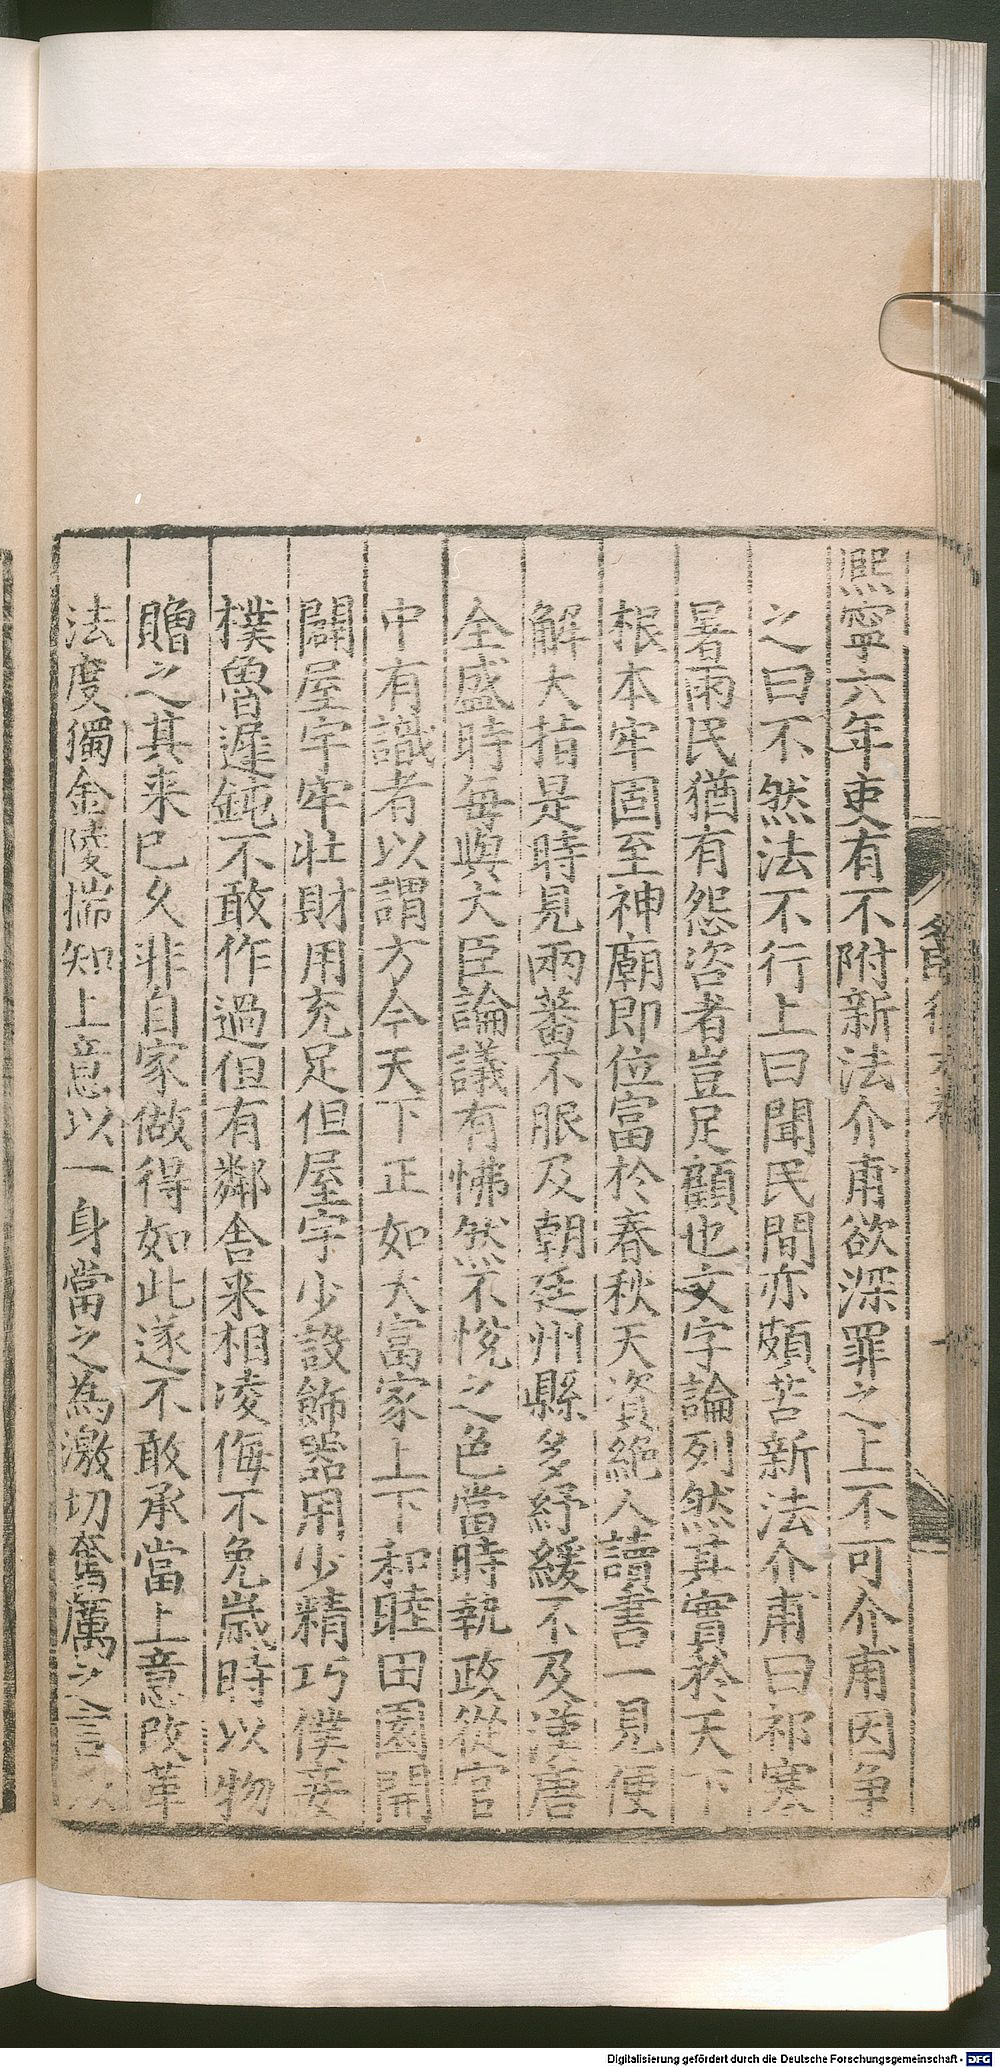 熈寧六年吏有不附新法介甫欲深罪之上不可介甫因争
之曰不然法不行上曰聞民間亦頗苦新法介甫曰祁寒
暑雨民猶有怨咨者豈足顧也文字論列然其實於天下
根本牢固至神廟即位富於春秋天資絶人讀書一見便
解大指是時見兩蕃不服及朝廷州縣多紓緩不及漢唐
全盛時每與大臣論議有怫然不悅之色當時執政從官
中有識者以謂方今天下正如大富家上下和睦田園開
闢屋宇牢壯財用充足但屋宇少設飾器用少精巧僕妾
樸魯遲鈍不敢作過但有鄰舎来相凌侮不免嵗時以物
贈之其来已久非自家做得如此遂不敢承當上意改革
法度獨金陵揣知上意以一身當之為激切奮厲之言以
Digitalisierung gefördert durch die Deutsche Forschungsgemeinschaft - DFG